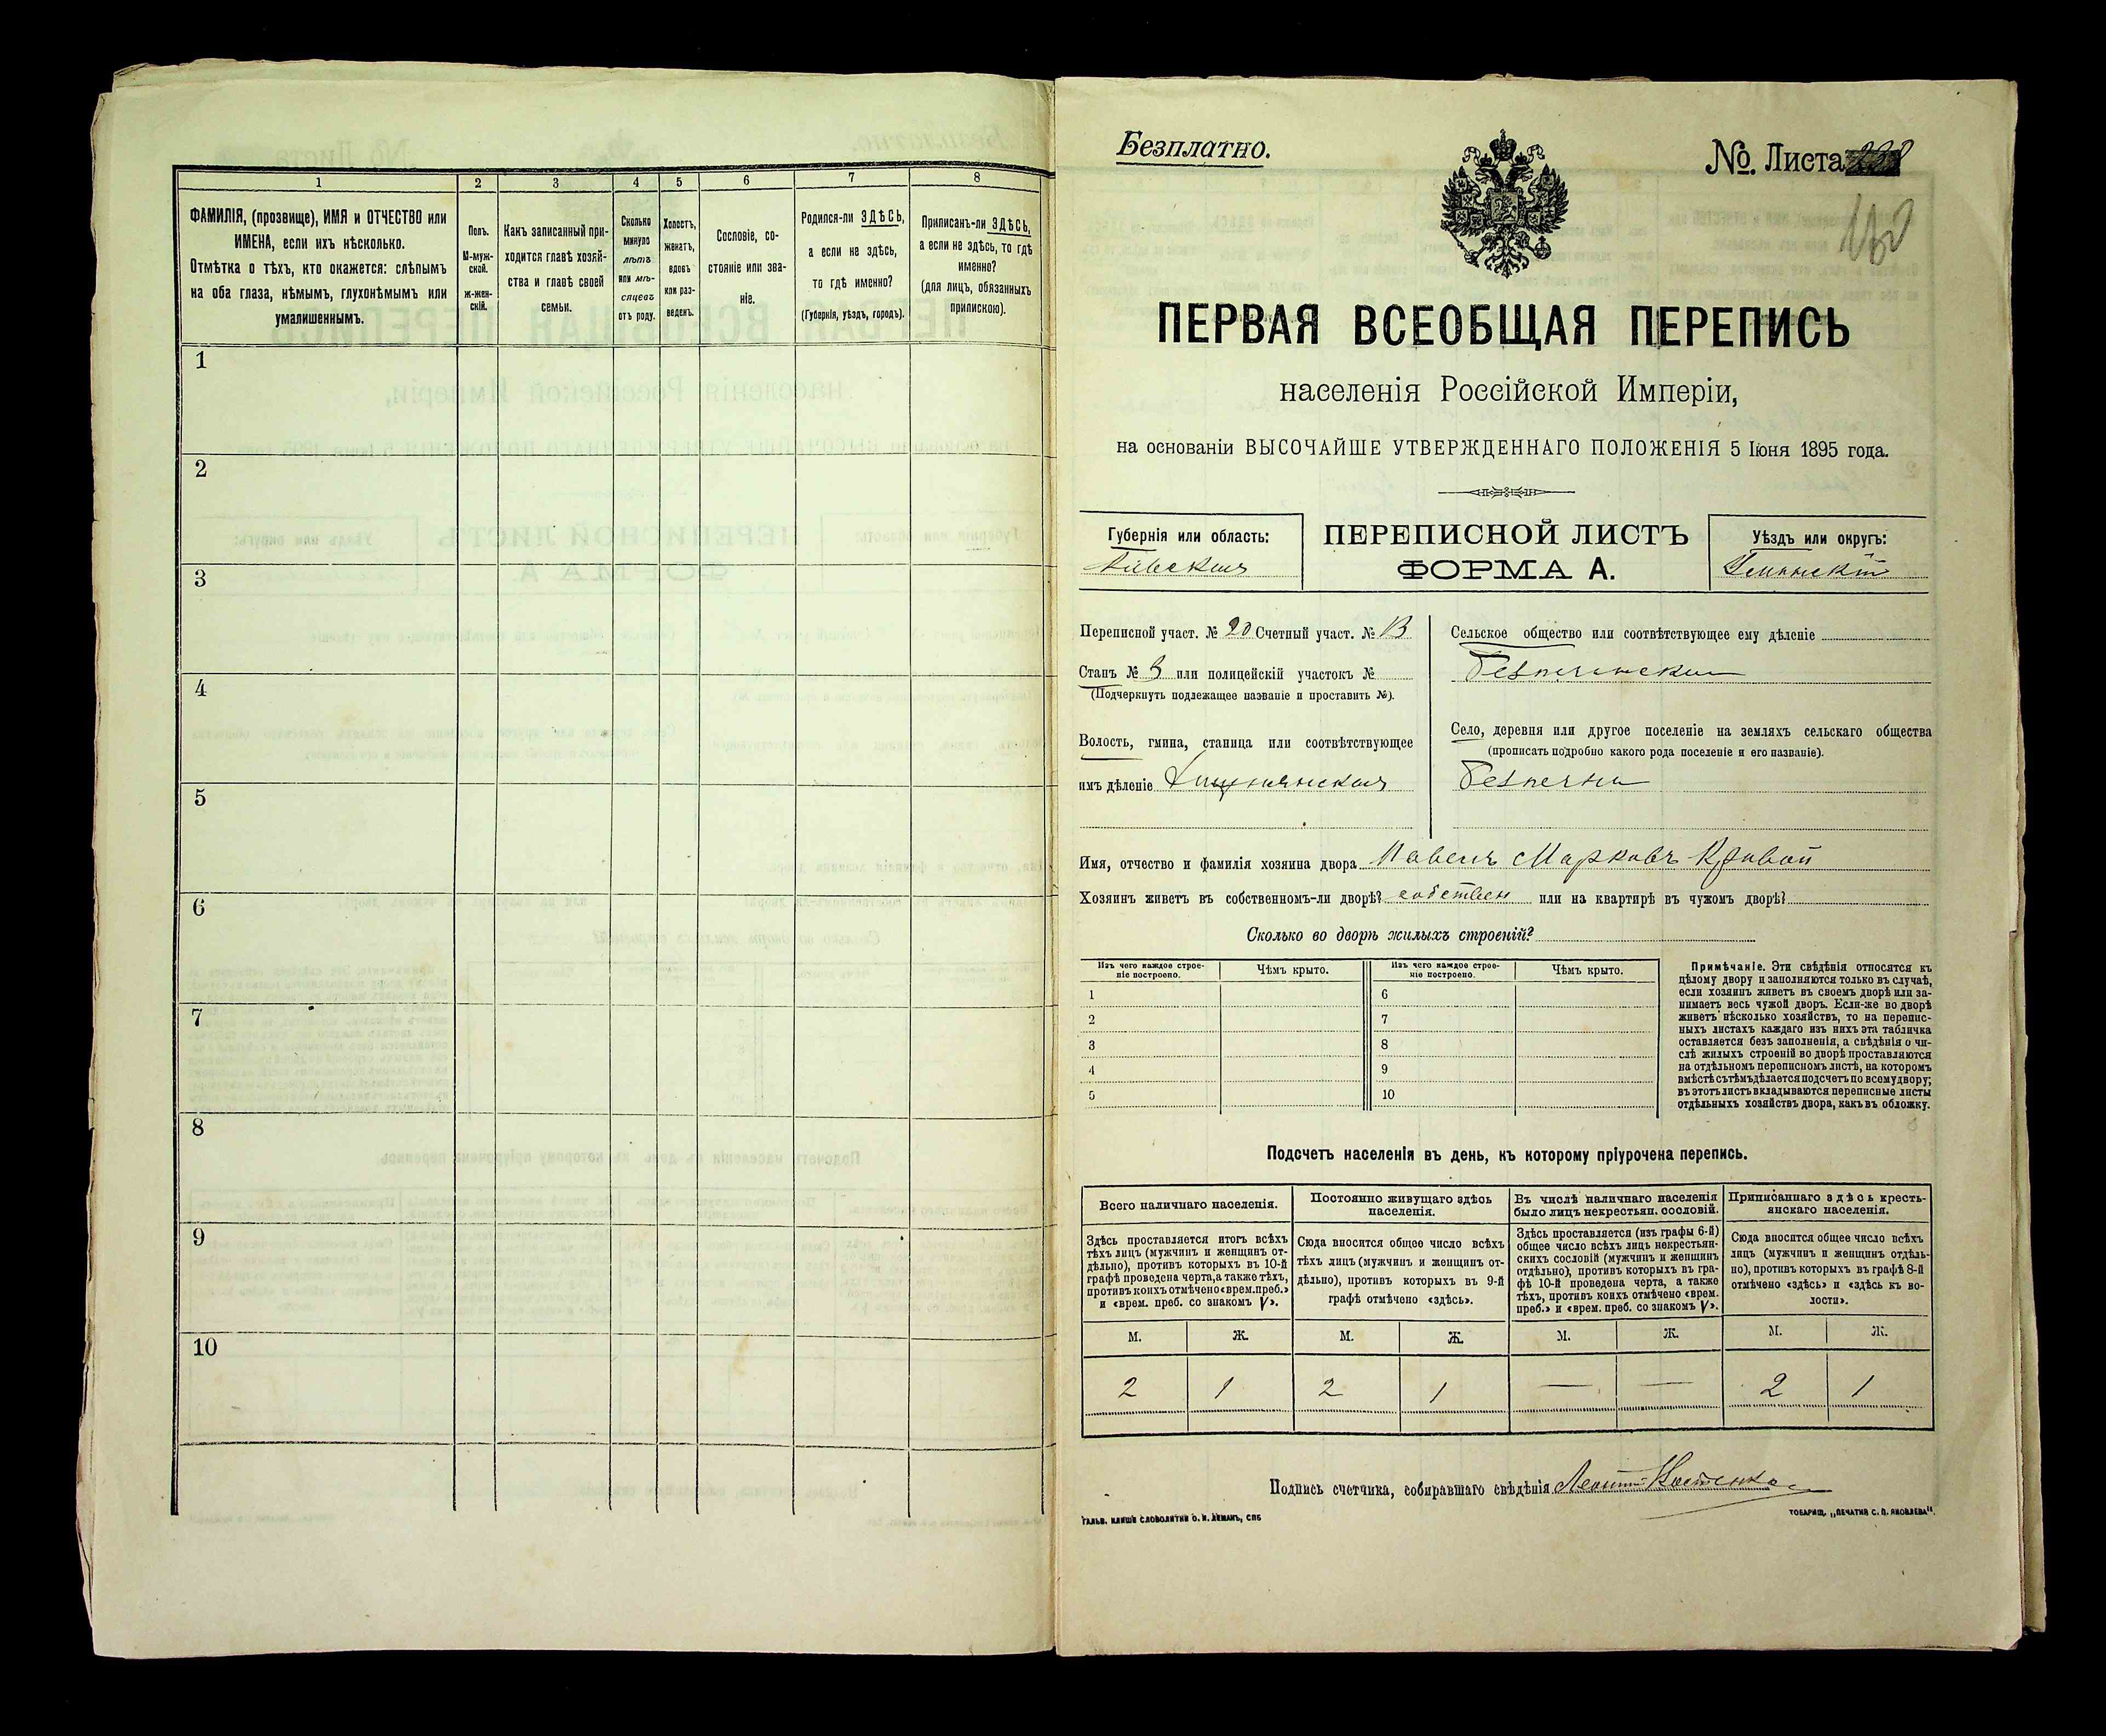 1
2
3
4
5
6
7
8
ФАМИЛІЯ, (прозвище), ИМЯ и ОТЧЕСТВО или
ИМЕНА, если ихъ нѣсколько.
Отмѣтка о тѣхъ, кто окажется: слѣпымъ
на оба глаза, нѣмымъ, глухонѣмымъ или
умалишеннымъ.
Полъ.
М-муж-
ской.
ж-жен-
скій.
Какъ записанный при-
ходится главѣ хозяй-
ства и главѣ своей
семьи.
Сколько
минуло
лѣтъ
или мѣ-
сяцевъ
отъ роду.
Холостъ,
женатъ,
вдовъ
или раз-
веденъ.
Сословіе, со-
стояніе или зва-
ніе.
Родился-ли ЗДѢСЬ,
а если не здѣсь,
то гдѣ именно?
(Губернія, уѣздъ, городъ).
Приписанъ-ли ЗДѢСЬ,
а если не здѣсь, то гдѣ
именно?
(для лицъ, обязанныхъ
припискою).
1
2
3
4
5
6
7
8
9
10
Безплатно.
№. Листа 238
ПЕРВАЯ ВСЕОБЩАЯ ПЕРЕПИСЬ
населенія Россійской Имперіи,
на основаніи ВЫСОЧАЙШЕ УТВЕРЖДЕННАГО ПОЛОЖЕНІЯ 5 Іюня 1895 года.
Губернія или область:
Кіевская
ПЕРЕПИСНОЙ ЛИСТЪ
ФОРМА А.
Уѣздъ или округъ:
Уманскій
Переписной участ. № 20 Счетный участ. №
Станъ № 3 или полицейскій участокъ №
(Подчеркнуть подлежащее названіе и проставить №).
Волость, гмина, станица или соотвѣтствующее
имъ дѣленіе
Сельское общество или соотвѣтствующее ему дѣленіе
Безпечанская
Село, деревня или другое поселеніе на земляхъ сельскаго общества
(прописать подробно какого рода поселеніе и его названіе).
Безпечна
Имя, отчество и фамилія хозяина двора Павелъ Марковъ Кривой
Хозяинъ живетъ въ собственномъ-ли дворѣ? собствен или на квартирѣ въ чужомъ дворѣ?
Сколько во дворѣ жилыхъ строеній?
Изъ чего каждое строе-
ніе построено.
Чѣмъ крыто.
Изъ чего каждое строе-
ніе построено.
Чѣмъ крыто.
1
2
3
4
5
6
7
8
9
10
Примѣчаніе. Эти свѣдѣнія относятся къ
цѣлому двору и заполняются только въ случаѣ,
если хозяинъ живетъ въ своемъ дворѣ или за-
нимаетъ весь чужой дворъ. Если-же во дворѣ
живетъ нѣсколько хозяйствъ, то на перепис-
ныхъ листахъ каждаго изъ нихъ эта табличка
оставляется безъ заполненія, а свѣдѣнія о чи-
слѣ жилыхъ строеній во дворѣ проставляются
на отдѣльномъ переписномъ листѣ, на которомъ
вмѣстѣ съ тѣмъ дѣлается подсчетъ по всему двору;
въ этотъ листъ вкладываются переписные листы
отдѣльныхъ хозяйствъ двора, какъ въ обложку.
Подсчетъ населенія въ день, къ которому пріурочена перепись.
Всего наличнаго населенія.
Здѣсь проставляется итогъ всѣхъ
тѣхъ лицъ (мужчинъ и женщинъ от-
дѣльно), противъ которыхъ въ 10-й
графѣ проведена черта, а также тѣхъ,
противъ коихъ отмѣчено «врем. преб.»
и «врем. преб. со знакомъ V».
Постоянно живущаго здѣсь
населенія.
Сюда вносится общее число всѣхъ
тѣхъ лицъ (мужчинъ и женщинъ от-
дѣльно), противъ которыхъ въ 9-й
графѣ отмѣчено «здѣсь».
Въ числѣ наличнаго населенія
было лицъ некрестьян. сословій.
Здѣсь проставляется (изъ графы 6-й)
общее число всѣхъ лицъ некрестьян-
скихъ сословій (мужчинъ и женщинъ
отдѣльно), противъ которыхъ въ гра-
фѣ 10-й проведена черта, а также
тѣхъ, противъ коихъ отмѣчено «врем.
преб.» и «врем. преб. со знакомъ V».
Приписаннаго здѣсь кресть-
янскаго населенія.
Сюда вносится общее число всѣхъ
лицъ (мужчинъ и женщинъ отдѣль-
но), противъ которыхъ въ графѣ 8-й
отмѣчено «здѣсь» и «здѣсь къ во-
лости».
М. Ж. М. Ж. М. Ж. М. Ж.
2 1 2 1 — — 2 1
Подпись счетчика, собиравшаго свѣдѣнія Костенко
ГАЛЬВ. КЛИШЕ СЛОВОЛИТНИ О. И. ЛЕМАНЪ, СПБ
ТОВАРИЩ. „ПЕЧАТНЯ С. П. ЯКОВЛЕВА“.